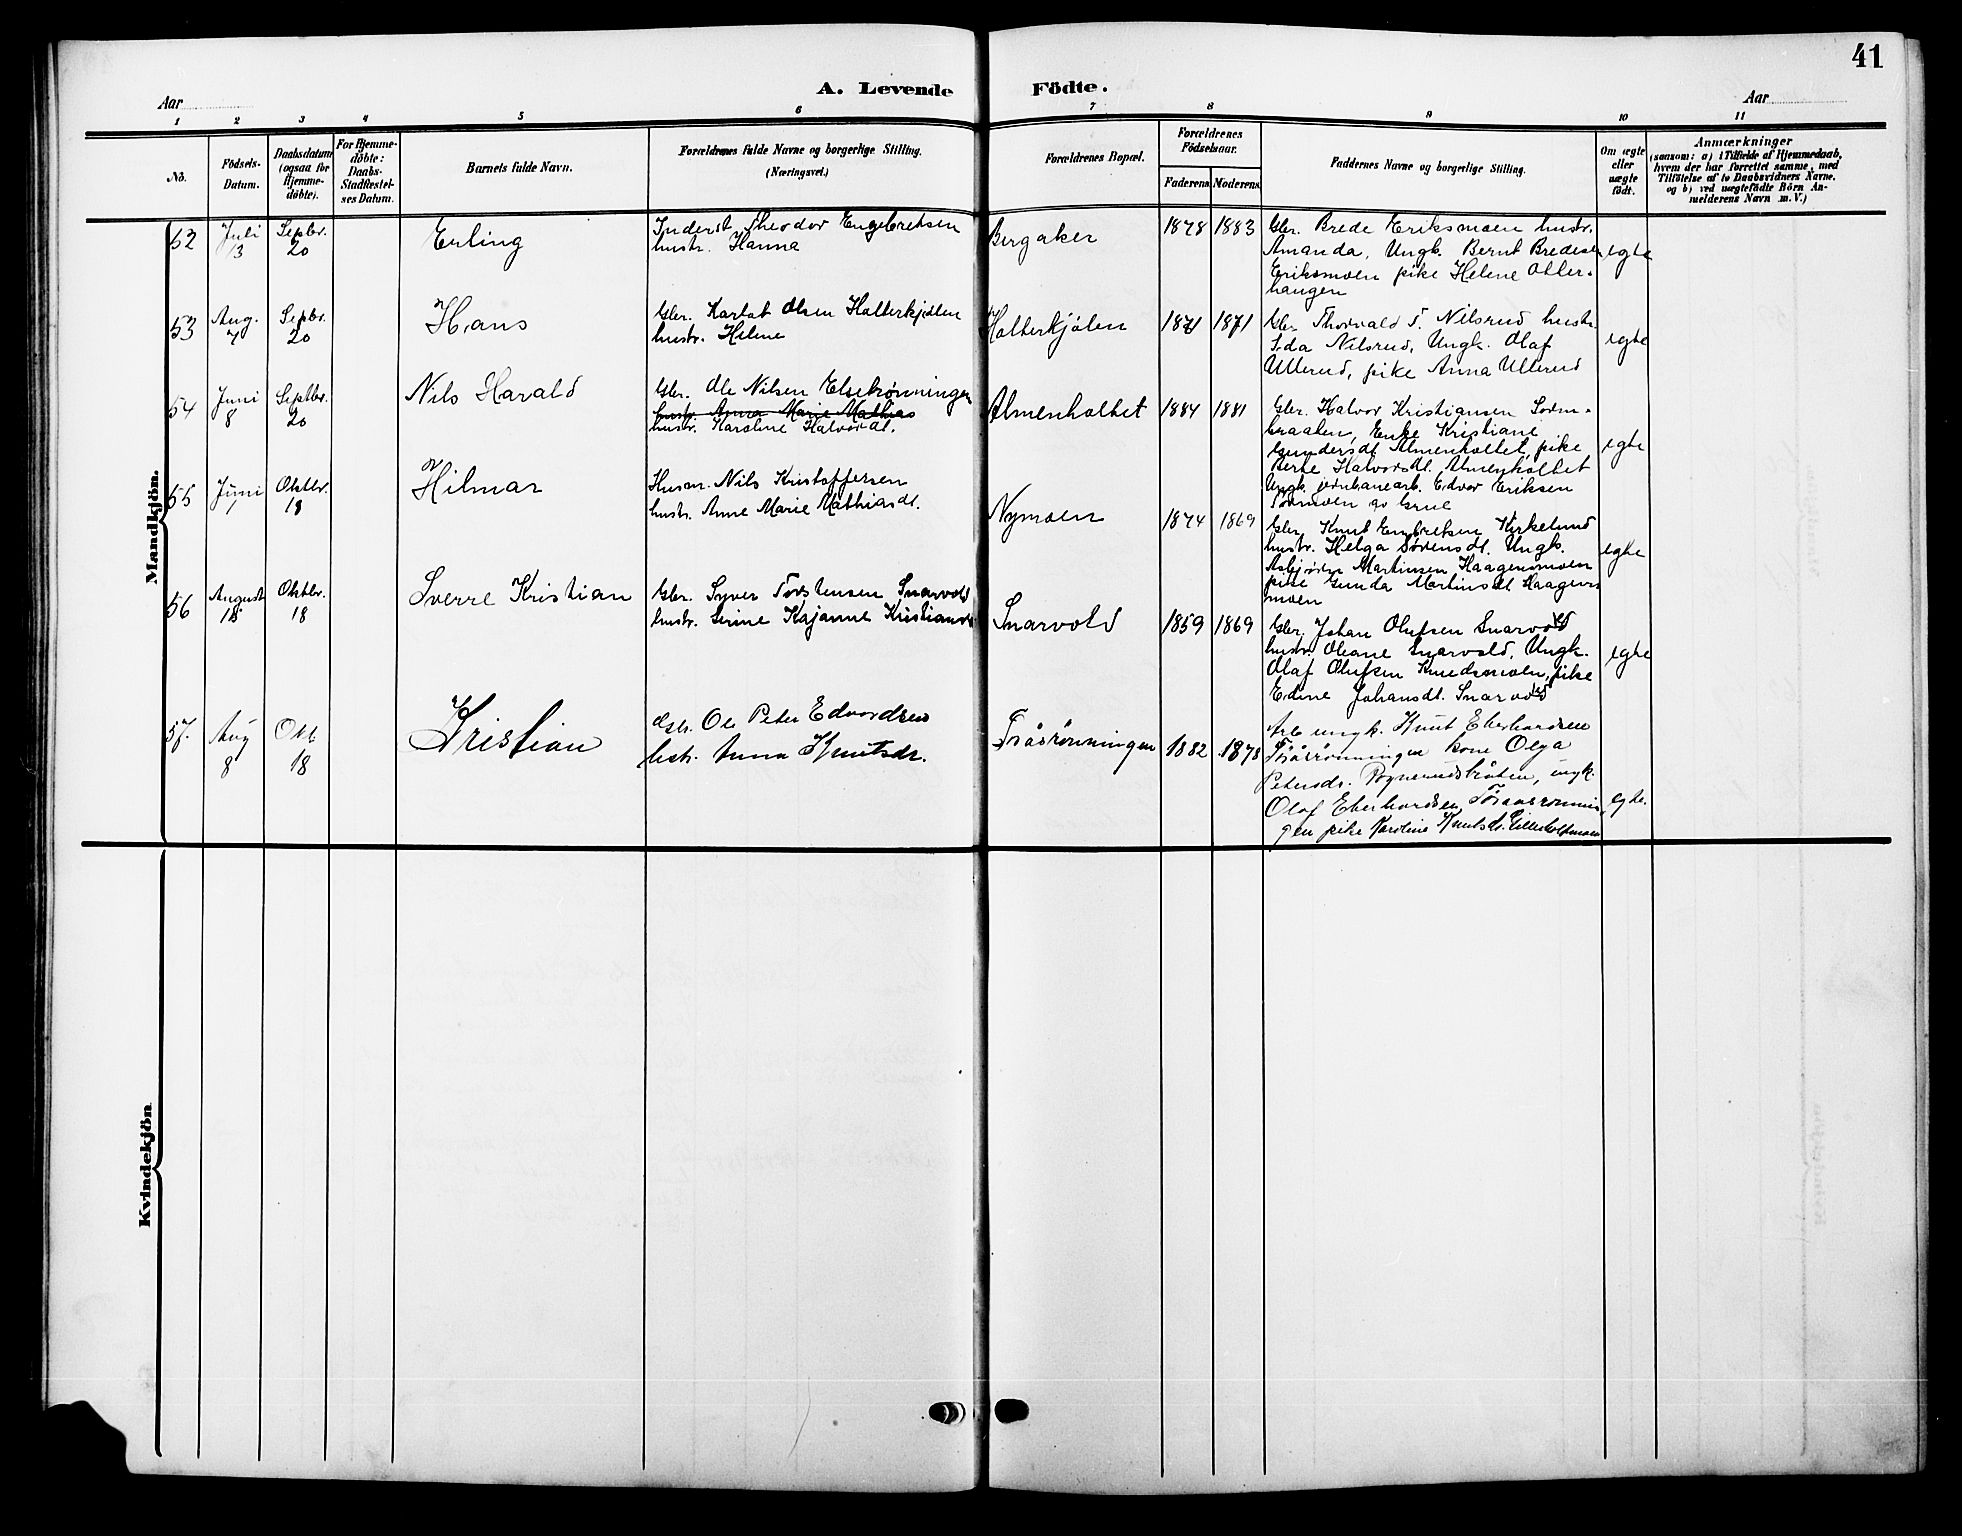 41
A. Levende Födte.
Aar
Aar
1 2 3 4 5 6 7 8 9 10 11
No.
Födsels-
Datum.
Daabsdatum
(ogsaa for
Hjemme-
döbte).
For Hjemme-
döbte:
Daabs-
Stadfæstel-
ses Datum.
Barnets fulde Navn.
Forældrenes fulde Navne og borgerlige Stilling.
(Næringsvei.)
Forældrenes Bopæl.
Forældrenes
Födselsaar.
Faderens
Moderens
Faddernes Navne og borgerlige Stilling.
Om ægte
eller
uægte
födt.
Anmærkninger
(saasom: a) i Tilfælde af Hjemmedaab,
hvem der har forrettet samme, med
Tilföielse af to Daabsvidners Navne,
og b) ved uægtefödte Börn An-
melderens Navn m. V.)
Mandkjön.
52
Juli
13
Sepbr.
20
Erling
Inderst Theodor Engebretsen
hustr. Hanna
Bergaker
1878
1883
Gbr. Brede Eriksmoen hustr.
Amanda, Ungk. Bernt Bredesen
Eriksmoen pike Helene Oller-
haugen
egte
53
Aug.
7
Sepbr.
20
Hans
Gbr. Karlot Olsen Holterkjølen
hustr. Helene
Holterkjølen
1871
1871
Gbr. Thorvald T. Nilsrud hustr.
Ida Nilsrud, Ungk. Olaf
Ullerud, pike Anna Ullerud
egte
54
Juni
8
Septbr.
20
Nils Harald
Gbr. Ole Nilsen Elsetrønningen
hustr. Anna Marie Mathias
hustr. Karoline Halvorsdt.
Almenholtet
1884
1881
Gbr. Halvor Kristiansen Sorm-
braaten, Enke Kristiane
Gundersdt Almenholtet, pike
Berte Halvorsdt. Almenholtet
Ungk. jernbanearb. Edvor Eriksen
Tormoen av Grue
egte
55
Juni
1
Oktbr.
18
Hilmar
Husm. Nils Kristoffersen
hustr. Anne Marie Mathiasdt.
Nymoen
1874
1869
Gbr. Knut Engebretsen Kirkelund
hustr. Helga Sørensdt. Ungk.
Asbjørn Martinsen Haagensmoen
pike Gunda Martinsdt Haagens
moen
egte
56
August
18
Oktbr.
18
Sverre Kristian
Gbr. Syver Torstensen Snarvold
hustr. Serine Kajanne Kristiansdt
Snarvold
1859
1869
Gbr. Johan Olufsen Snarvold
hustr. Oleane Snarvold, Ungk.
Olaf Olufsen Knedsmoen, pike
Edine Johansdt. Snarvold
egte
57.
Aug
8
Okt
18
Kristian
Gbr. Ole Peter Edvardsen
hstr. Anna Knutsdr.
Tråsrønningen
1882
1878
Arb ungk. Knut Eberhardsen
Tråsrønningen kone Olga
Petersdr. Rognerudsbråten, ungk.
Olaf Eberhardsen, Traasrønnin
gen pike Karoline Knutsdr. Lilleholtmoen
egte.
Kvindekjön